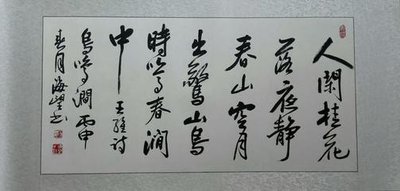 人閑桂花
落夜静
春山空月
出驚山鳥
時鳴春澗
中 王維詩
鳥鳴澗 丙申
春月海望书